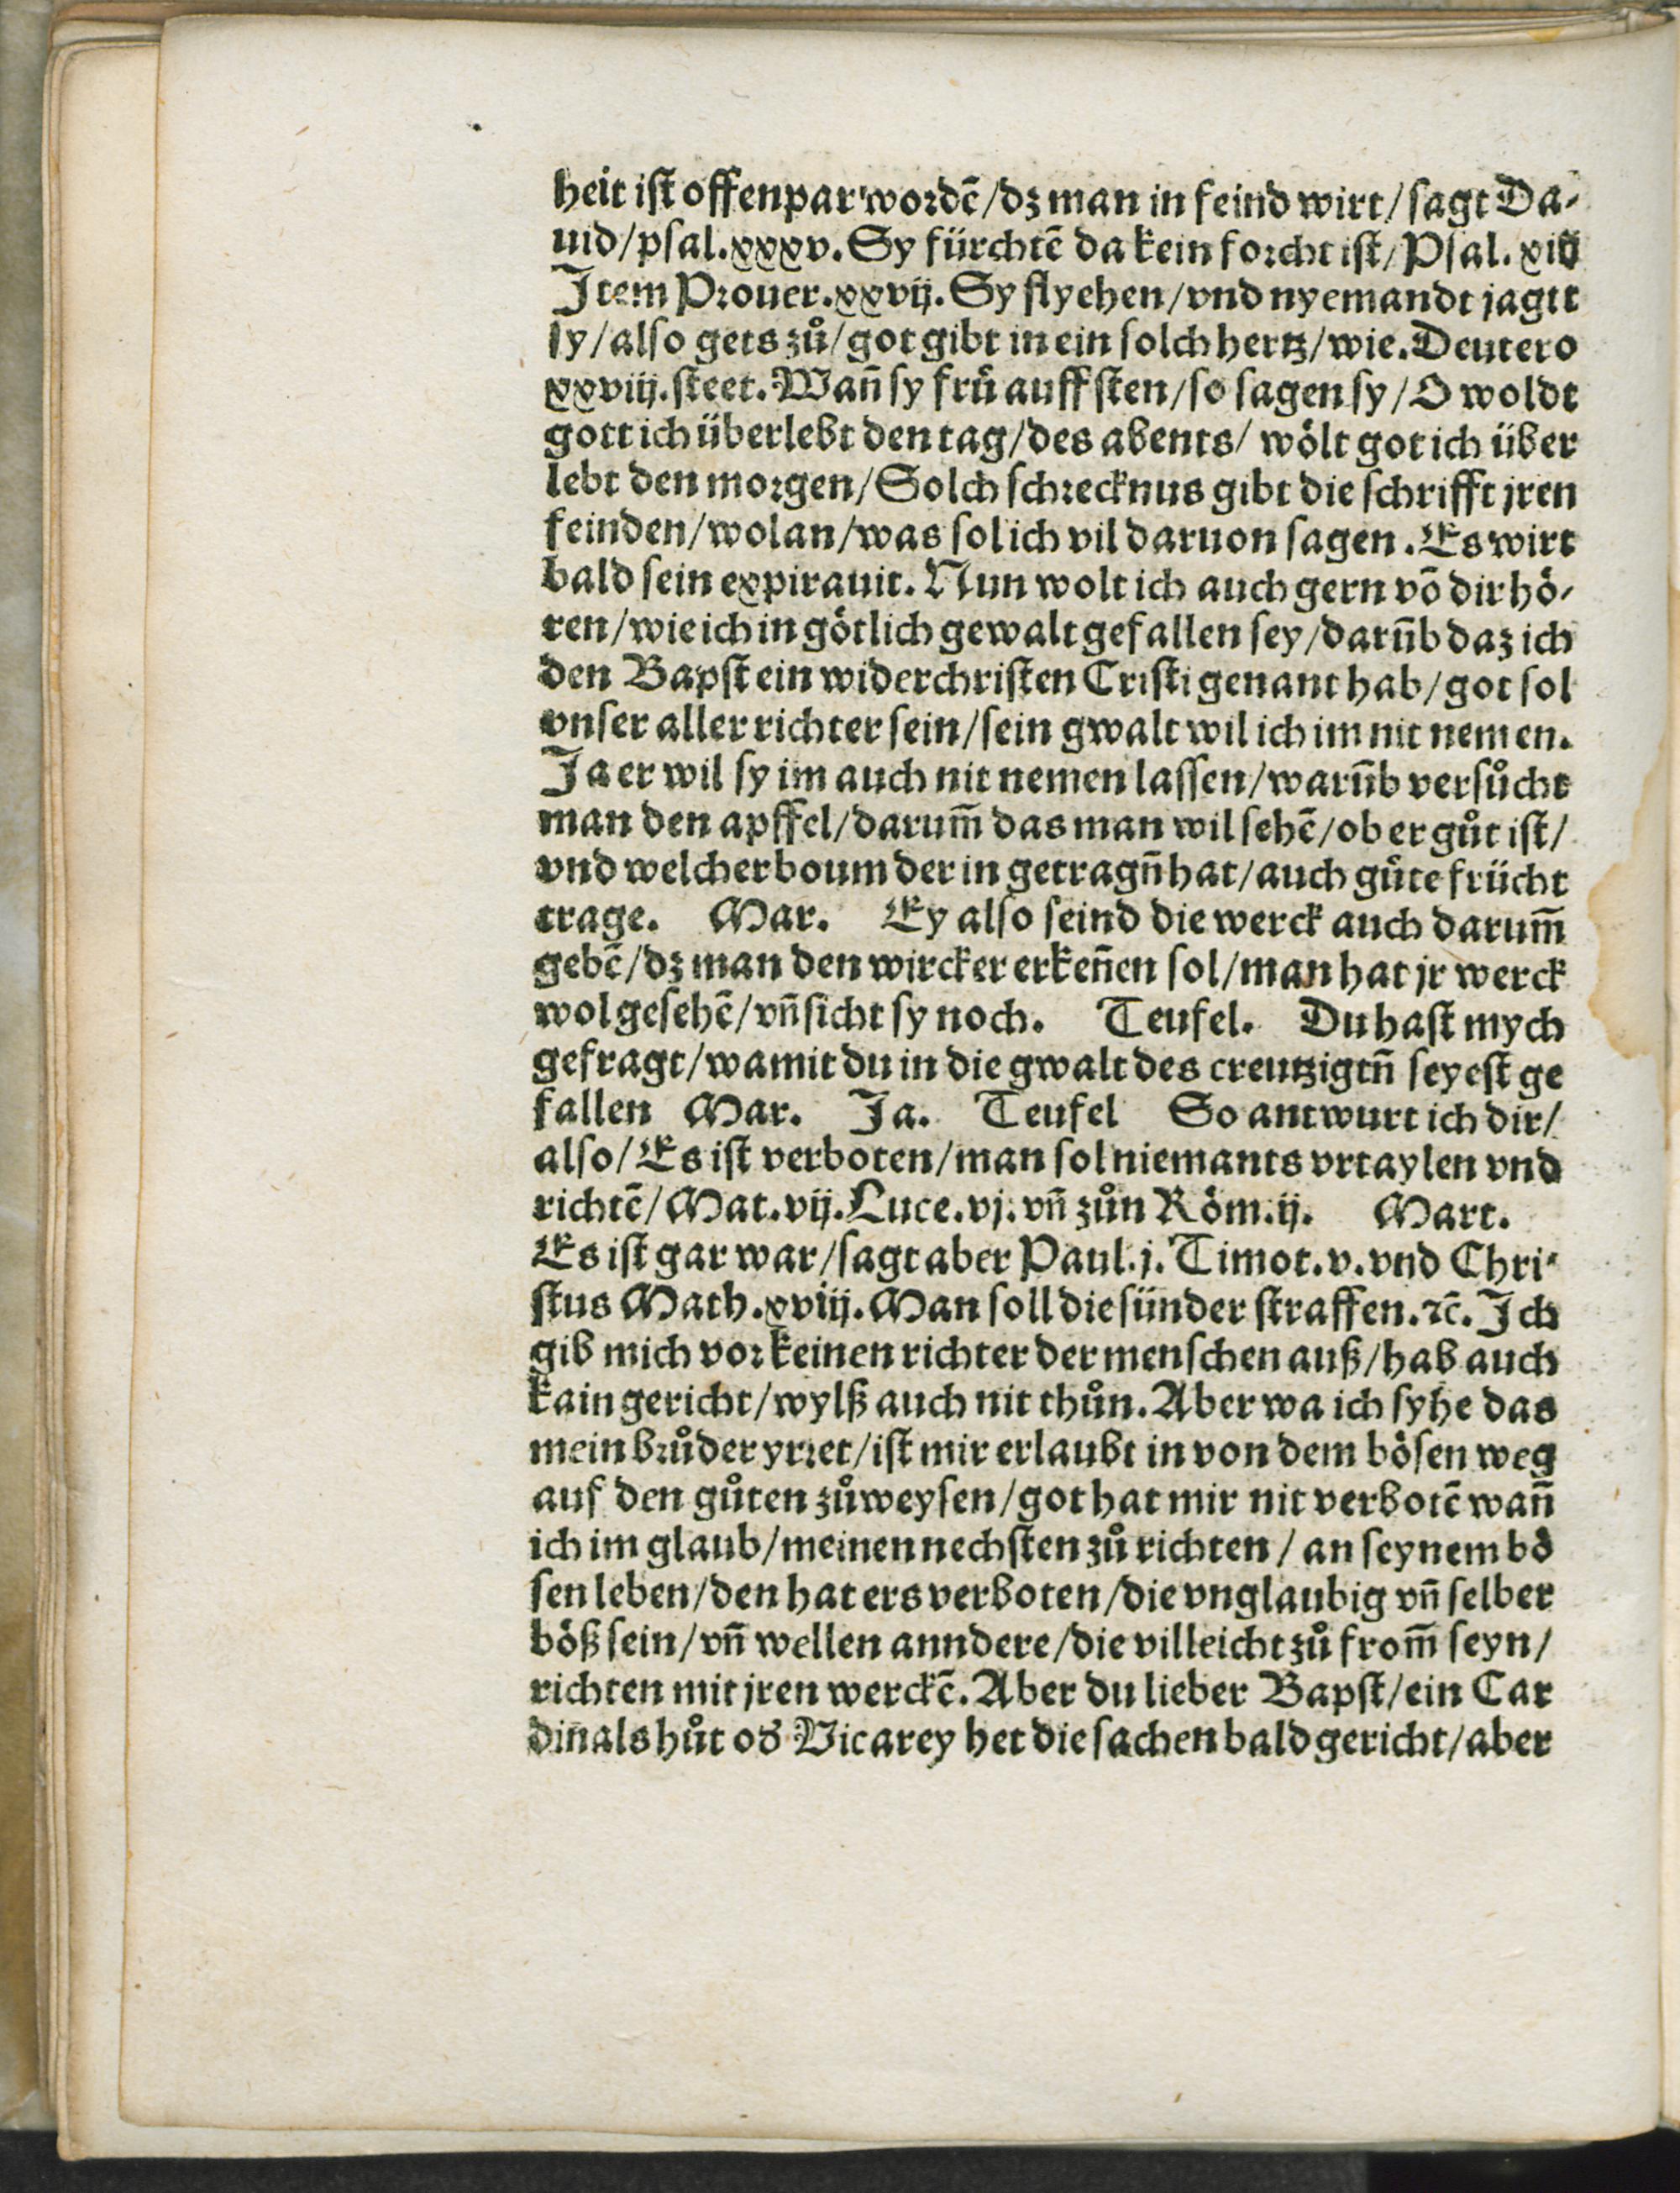 heit iſt offenpar wordē/dz man in feind wirt/ſagt Da⸗
uid/pſal.xxxv. Sy fürchtē da kein forcht iſt/Pſal. xiij
Item Prouer.xxvij. Sy flyehen/vnd nyemandt jagtt
ſy/alſo gets zů/got gibt in ein ſolch hertz/wie. Deutero
xxviij. ſteet. Wan̄ ſy frü auff ſten/ſo ſagen ſy/O woldt
gott ich überlebt den tag/des abents/ wölt got ich über
lebt den morgen/Solch ſchrecknus gibt die ſchrifft jren
feinden/wolan/was ſol ich vil daruon ſagen. Es wirt
bald ſein expirauit. Nun wolt ich auch gern vō dir hö⸗
ren/wie ich in götlich gewalt gefallen ſey/darūb daz ich
den Bapſt ein widerchriſten Criſti genant hab/got ſol
vnſer aller richter ſein/ſein gwalt wil ich im nit nemen.
Ja er wil ſy im auch nit nemen laſſen/warūb verſůcht
man den apffel/darum̄ das man wil ſehē/ob er gůt iſt/
vnd welcher boum der in getragn̄ hat/auch gůte frücht
trage. Mar. Ey alſo ſeind die werck auch darum̄
gebē/dz man den wircker erken̄en ſol/man hat jr werck
wol geſehē/vn̄ ſicht ſy noch. Teufel. Du haſt mych
gefragt/wamit du in die gwalt des creutzigtn̄ ſeyeſt ge
fallen Mar. Ja. Teufel So antwurt ich dir/
alſo/Es iſt verboten/man ſol niemants vrtaylen vnd
richtē/Mat.vij. Luce.vj. vn̄ zůn Röm.ij. Mart.
Es iſt gar war/ſagt aber Paul.j. Timot.v. vnd Chri⸗
ſtus Math.xviij. Man ſoll die ſünder ſtraffen.ꝛc̄. Ich
gib mich vor keinen richter der menſchen auß/hab auch
kain gericht/wylß auch nit thůn. Aber wa ich ſyhe das
mein brůder yrret/iſt mir erlaubt in von dem böſen weg
auf den gůten zůweyſen/got hat mir nit verbotē wan̄
ich im glaub/meinen nechſten zů richten / an ſeynem bö
ſen leben/den hat ers verboten/die vnglaubig vn̄ ſelber
böß ſein/vn̄ wellen anndere/die villeicht zů from̄ ſeyn/
richten mit jren werckē. Aber du lieber Bapſt/ein Car
din̄als hůt oď Vicarey het die ſachen bald gericht/aber